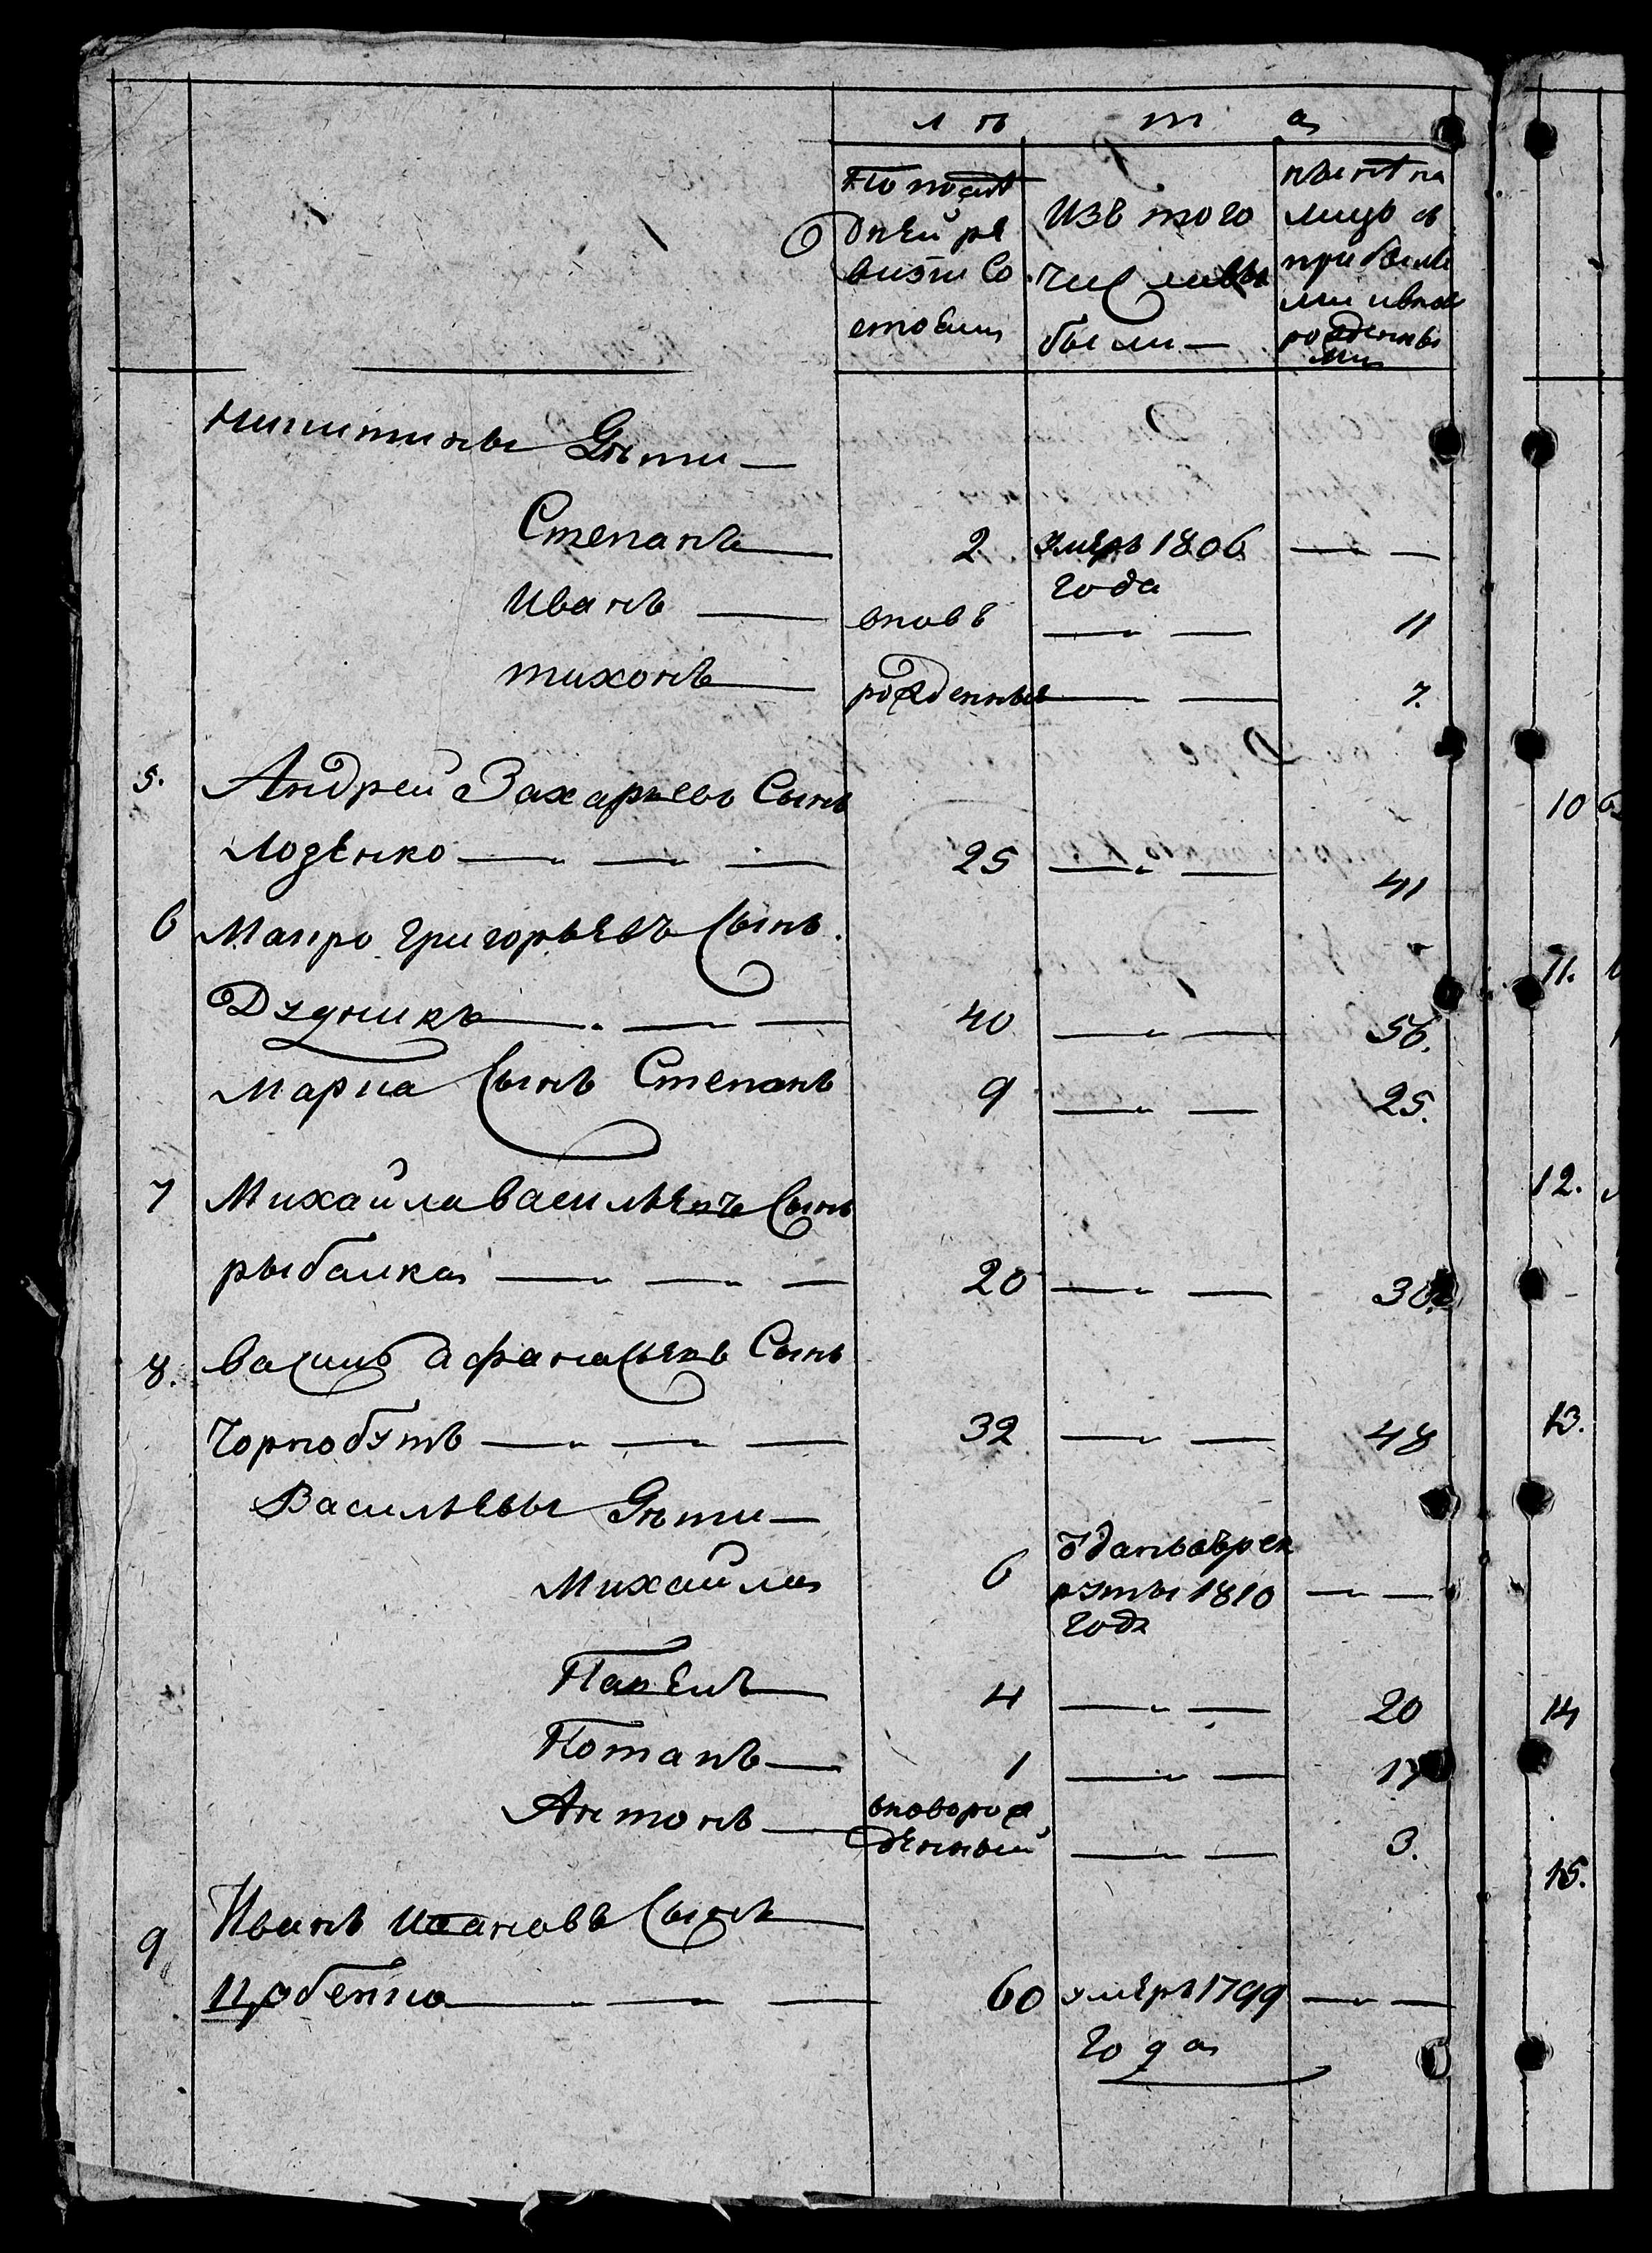 лѣта
По послѣ
дней ре
визіи Со
стоѣли
Изъ того
числа вы
были —
нынѣ на
лицо съ
прибылы
ми и вно
рожденны
ми
Никитины Дѣти —
Степанъ — 2 умеръ 1806 — —
года
Иванъ — вновь — — 11
тихонъ — рожденные — — 7.
5. Андрей Захарьевъ Сынъ
Лозенко — — — 25 — — 41
6 Макаръ григорьевъ Сынъ
Дудникъ — — — 40 — — 56.
Марка Сынъ Степанъ 9 — — 25.
7 Михайла васильевъ Сынъ
рыбалка — — — 20 — — 36.
8. василь афанасьевъ Сынъ
Чорнобутъ — — — 32 — — 48
Васильевы Дѣти —
Михайла 6 ѿданъ въ рек
руты 1810 — —
года
Павелъ — 4 — — 20
Потапъ — 1 — — 17
Антонъ — вноворож
денный — — 3.
9 Иванъ Ивановъ Сынъ —
— — — 60 умеръ 1799 — —
года
10
11.
12.
13.
14
15.